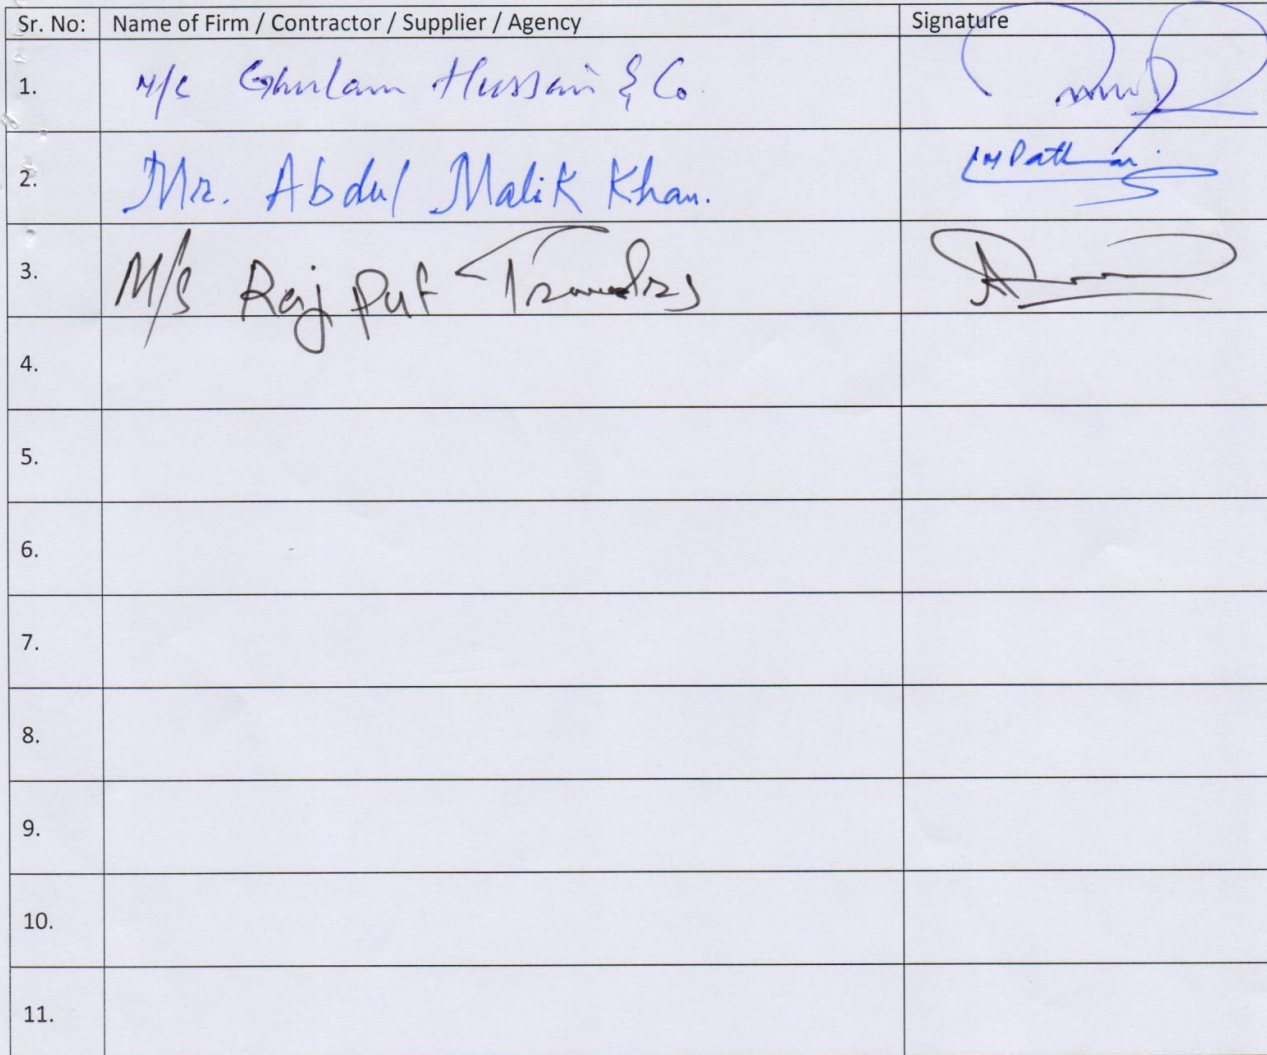 Sr. No: Name of Firm / Contractor / Supplier / Agency Signature
1. M/s Ghulam Hussain & Co
2. Mr. Abdul Malik Khan.
3. M/s Rajput Traders
4.
5.
6.
7.
8.
9.
10.
11.